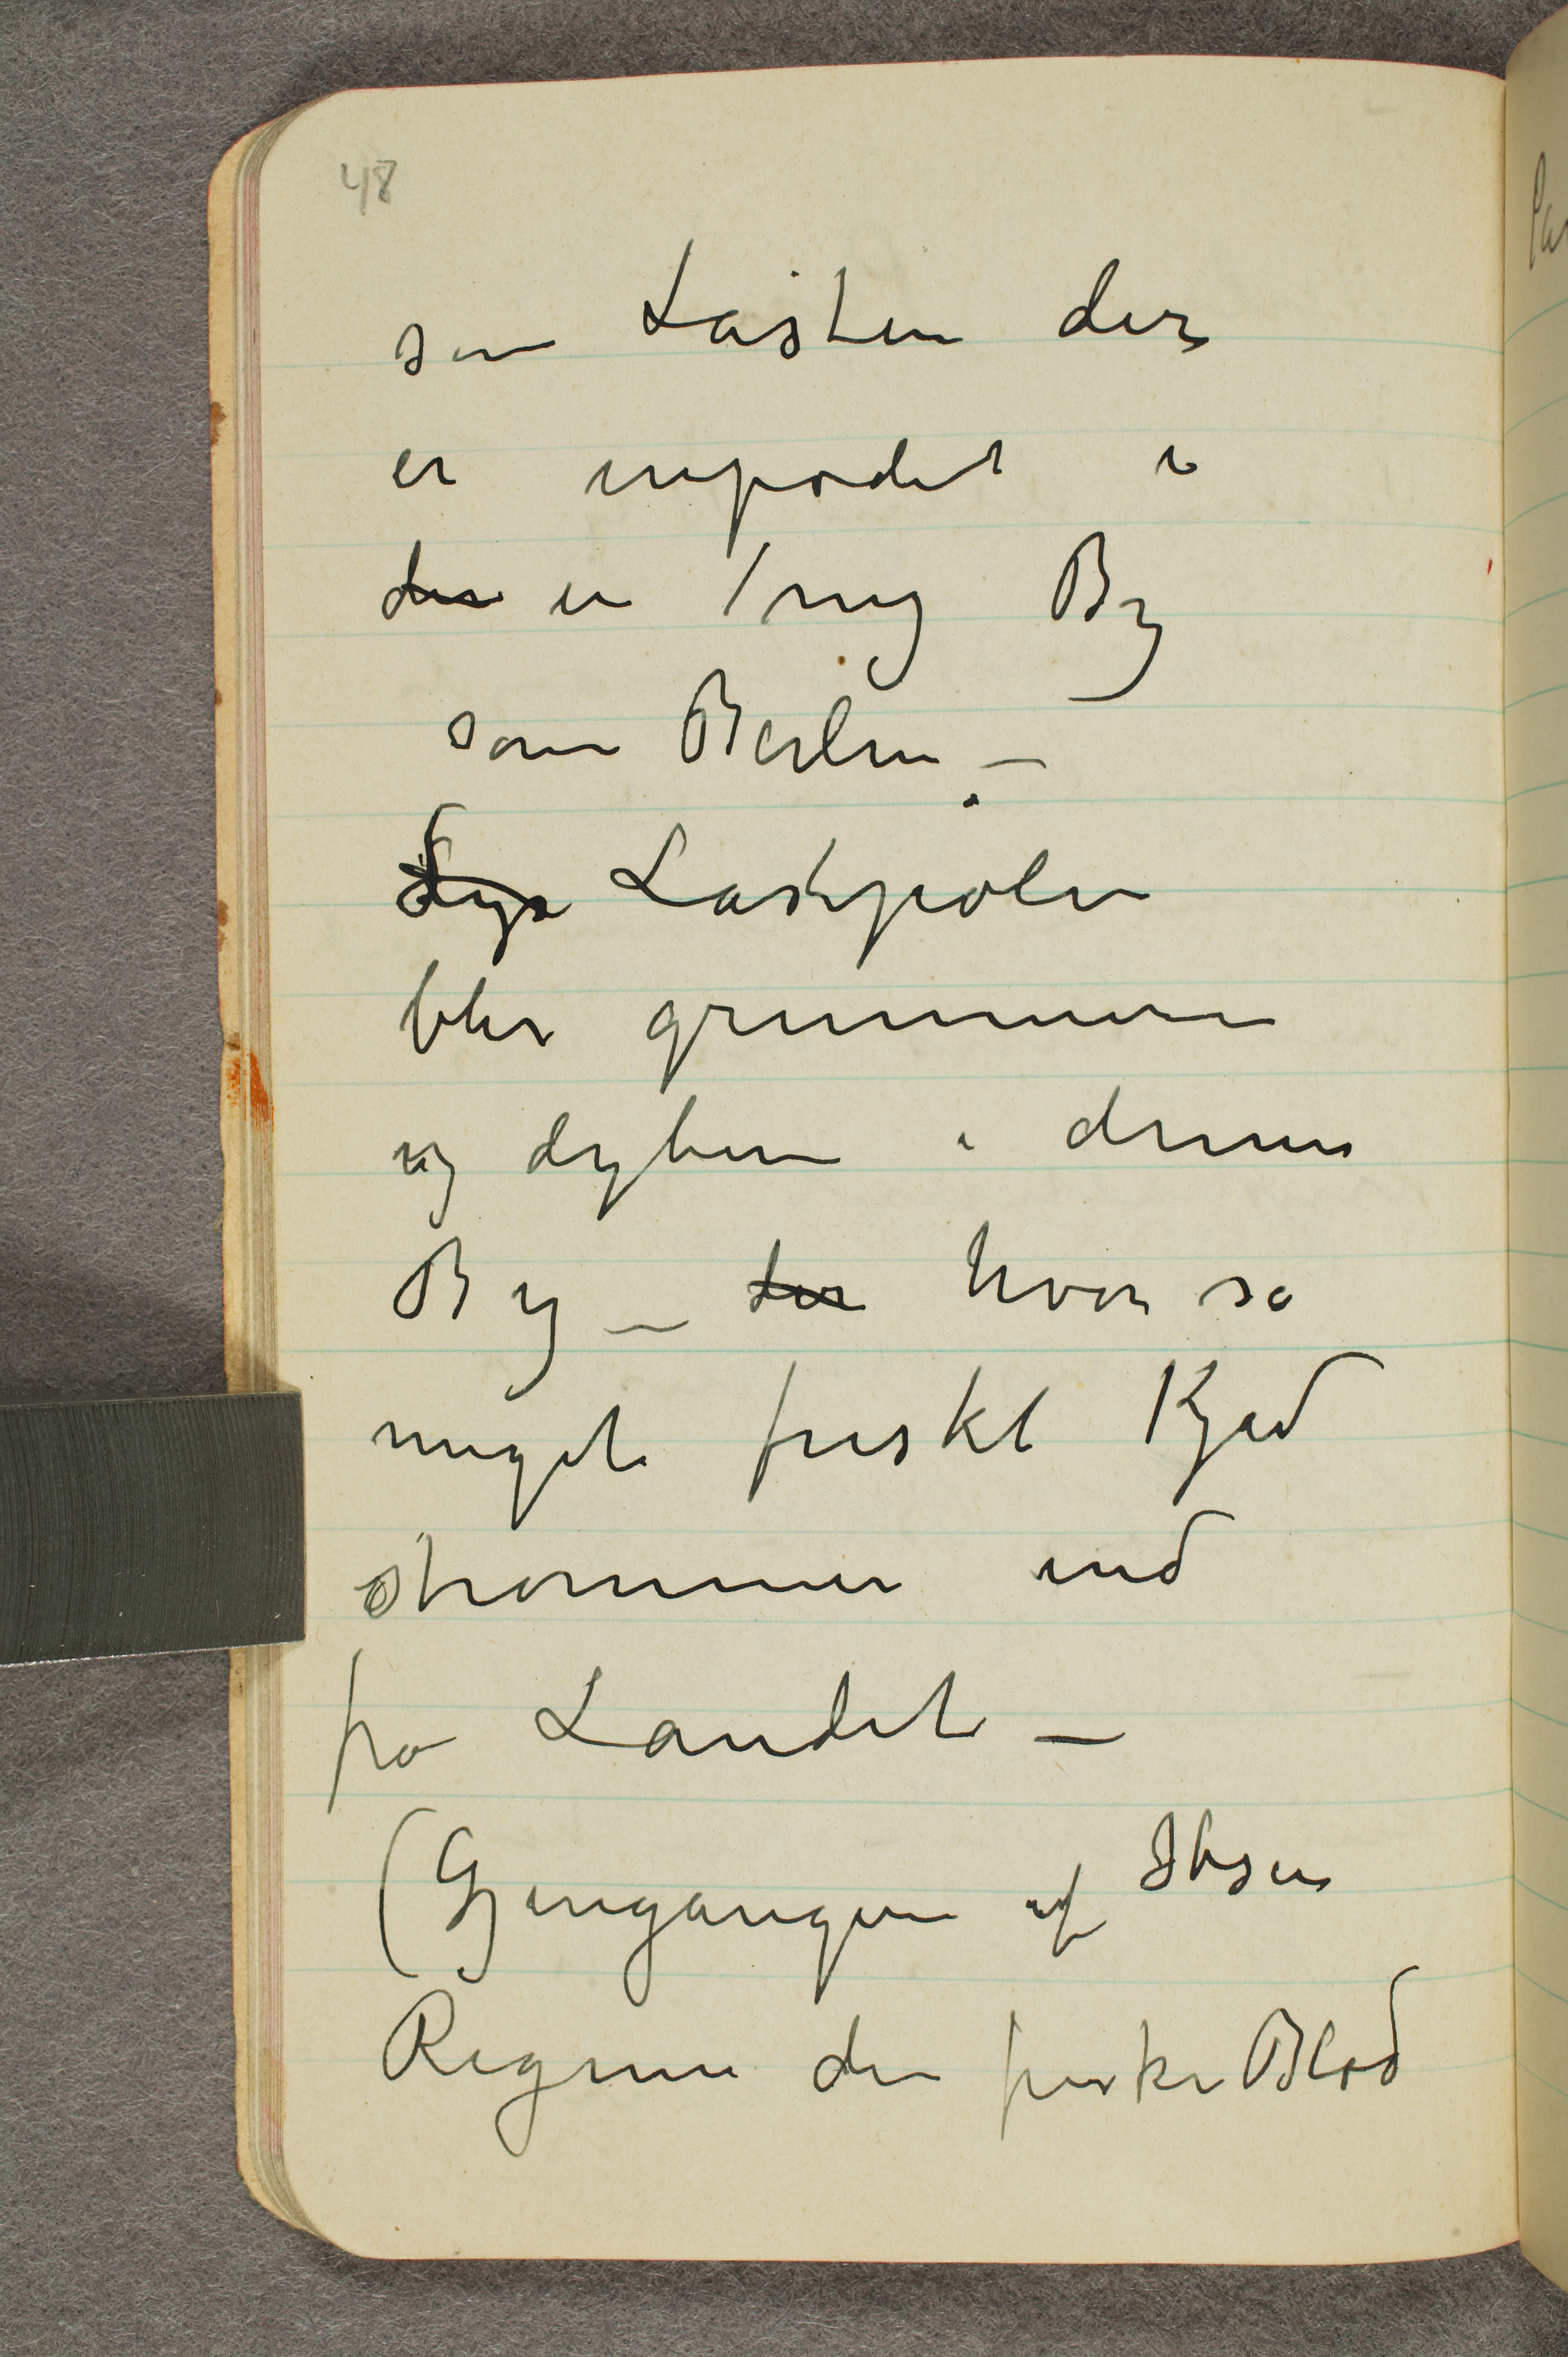 48
som Lasten der
er inpodet i
der en / ny By
som Berlin –
Dyr Lastepølen
blir grummere
og dybere i denne
By – der hvor så
meget friskt Kjød
strømmer ind
fra Landet –
(Gjengangere af Ibsen
Regine den friske Blod